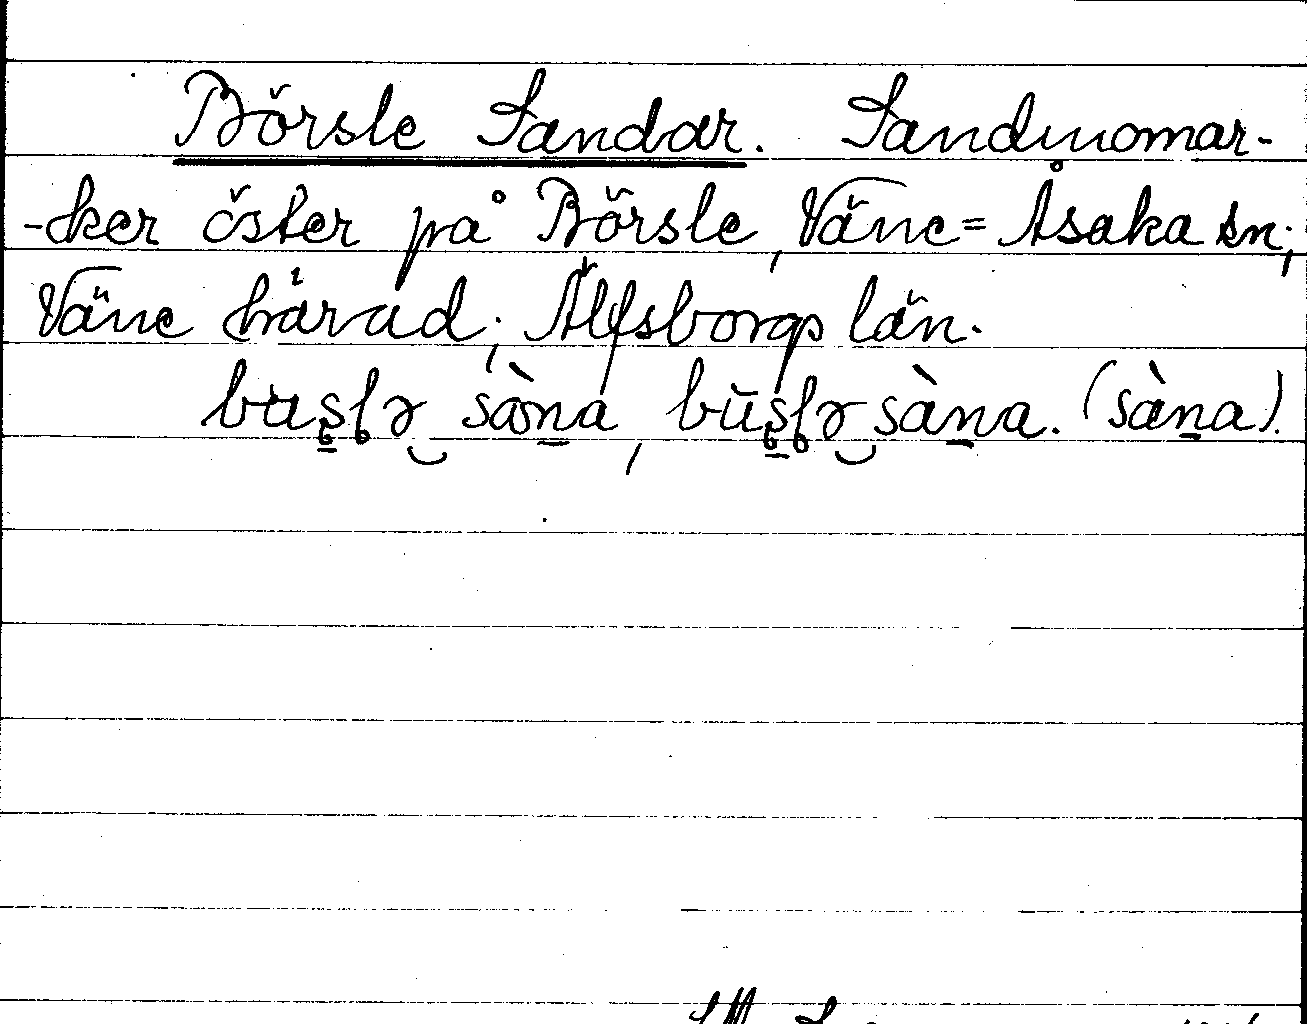 Börsle Sandar. Sandmomar-
-ker öster på Börsle, Väne=Åsaka sn;
Väne härad; Älfsborgs län.
buşlə sàna, bŭşlə sàna. (sàna).